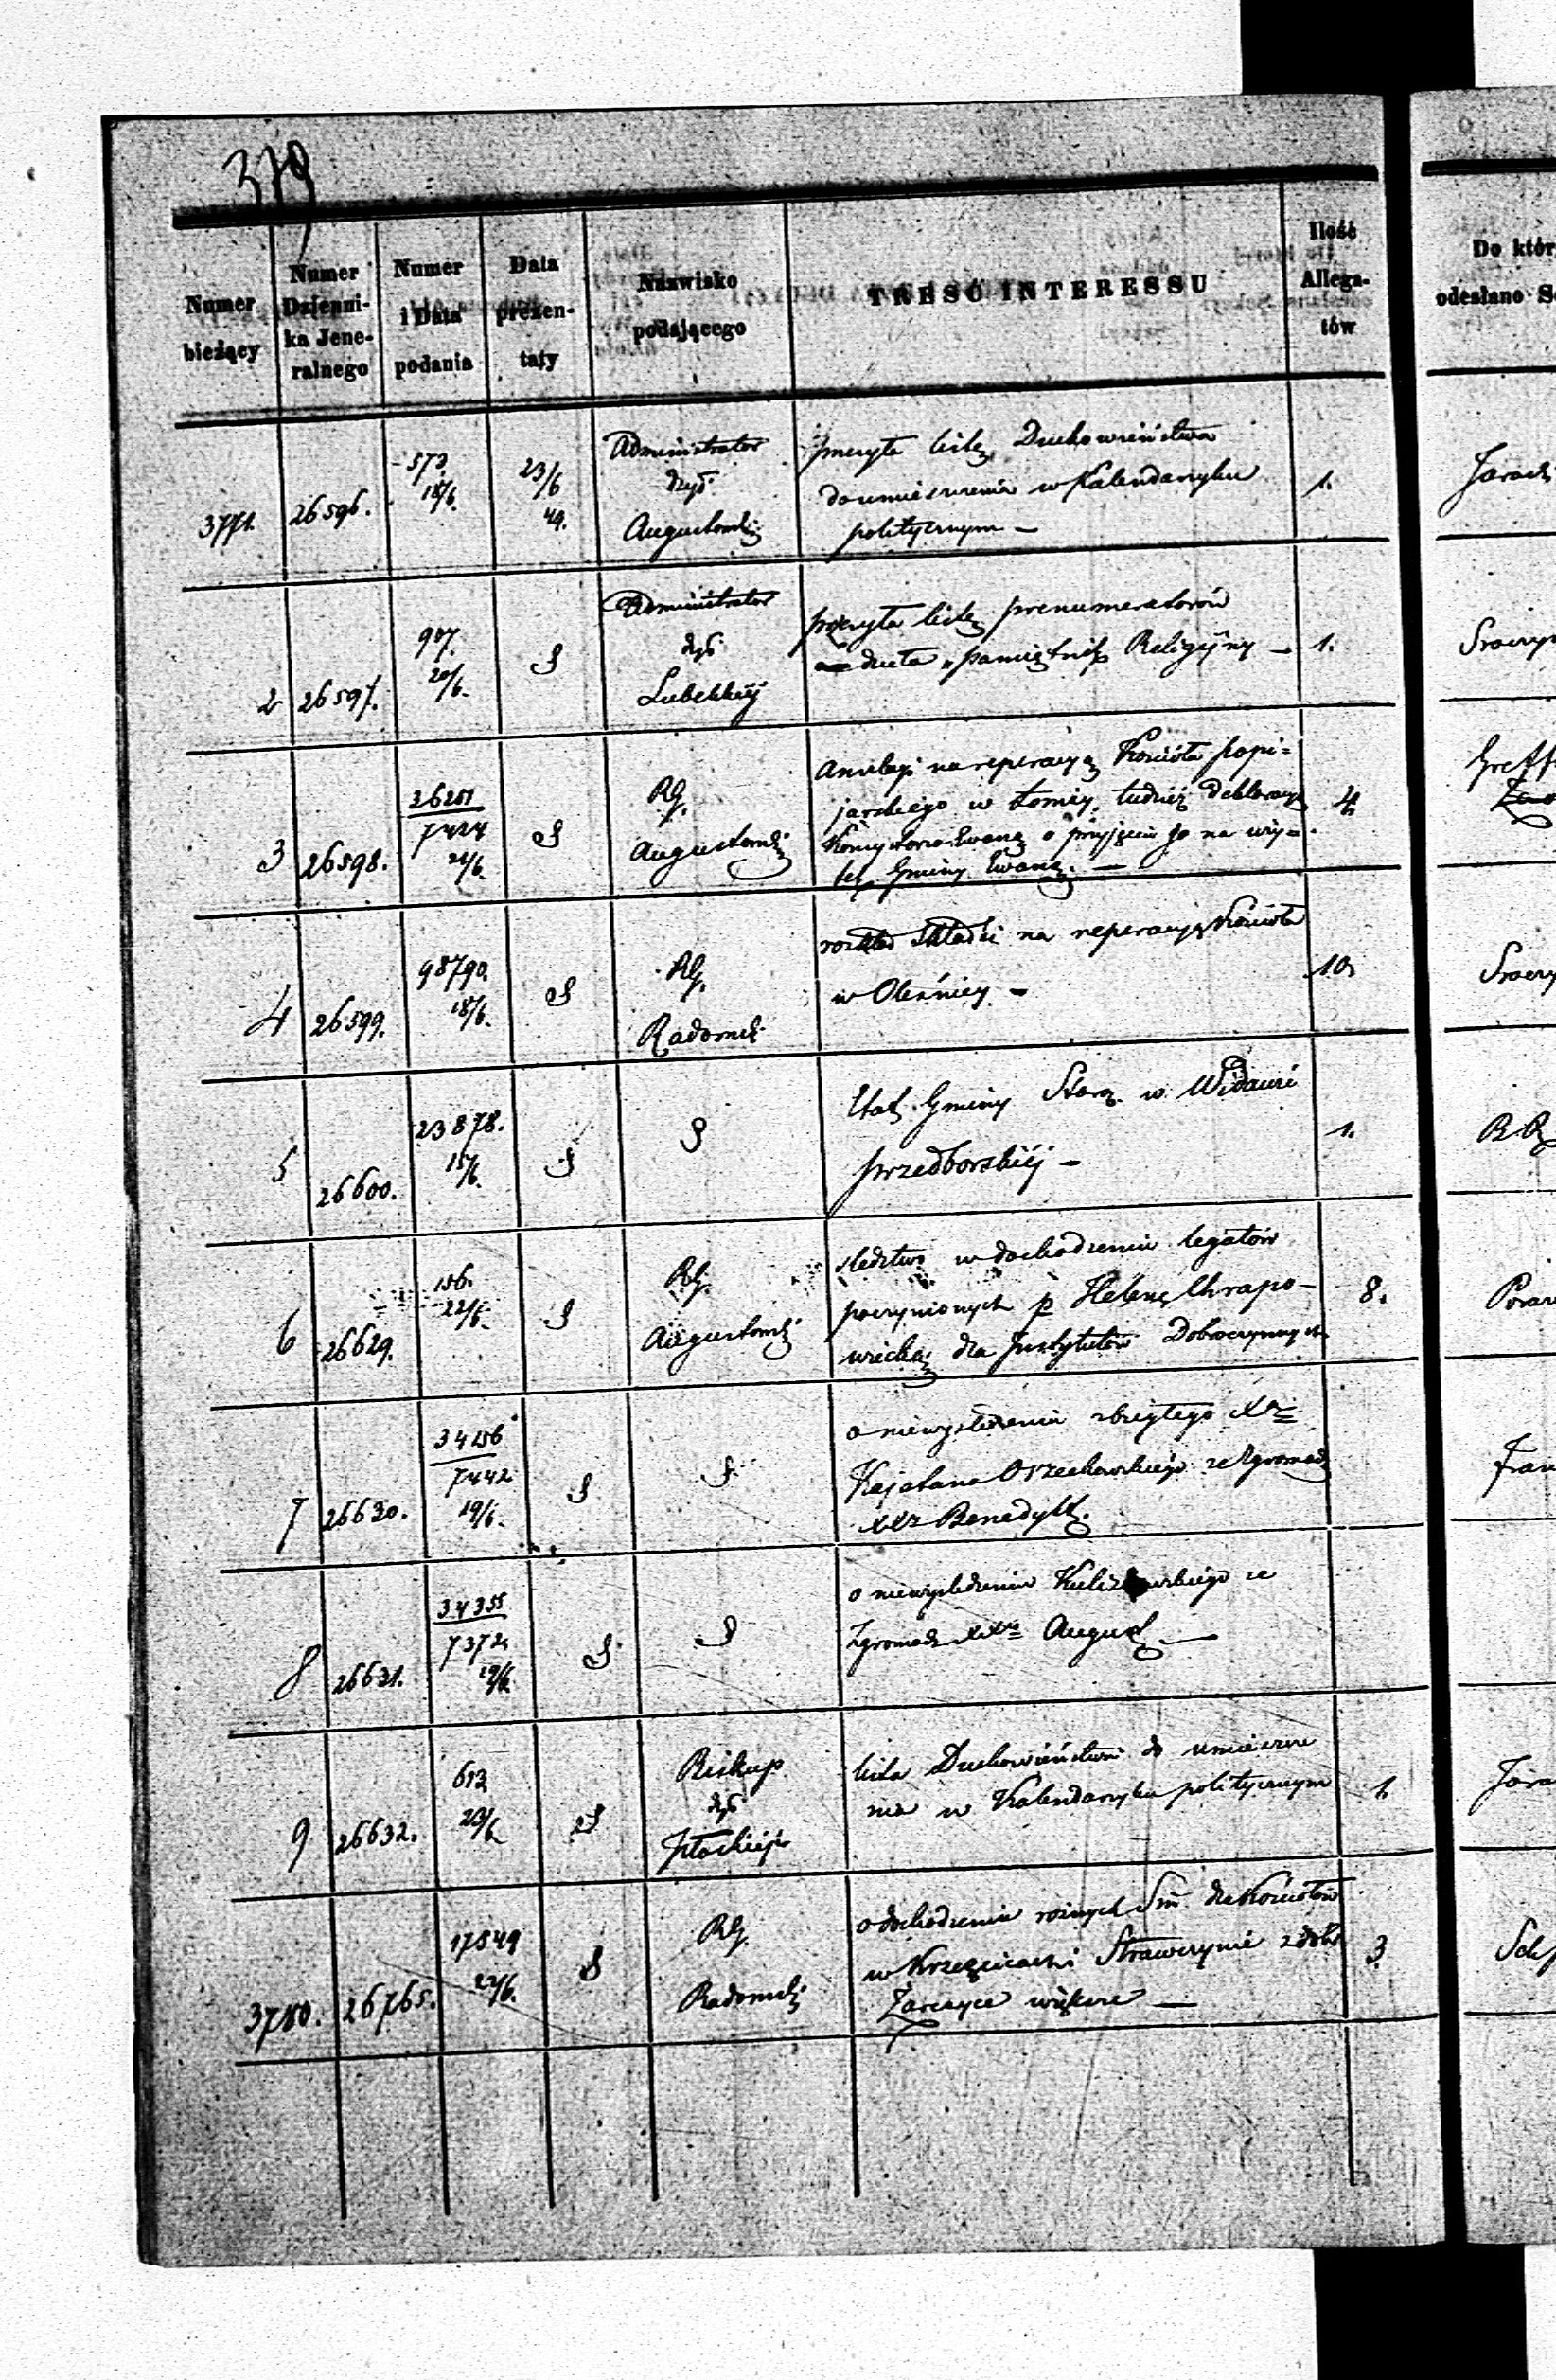 379
Numer
bieżący
Numer
Dzienni-
ka Jene-
ralnego
Numer
i Data
podania
Data
prezen-
taty
Nazwisko
podającego
TREŚĆ INTERESSU
Ilość
Allega-
tów
Do któr
odesłano S
3771. 26596. 573. 18/6. 23/6 49.
Administrator
dyć.
Augustowski
przesyła listę Duchowieństwa
do umieszczenia w Kalendarzyku
politycznym —
1.
2 26597. 907. 20/6.
Administrator
dyć
Lubelskiéj
przesyła listę prenumeratorów
dzieła „pamiętnik Religijny —
1.
3 26598. 36251 7424 21/6.
RG.
Augustowski
na reperacyą Kościoła popi=
jarskiego w Łomży, tudzież deklaracyą
o przyjęciu go na
Gminy Ewang. —
4.
4 26599. 98790. 18/6.
RG.
Radomski
rozkład składki na reperacyą Kościoła
w Oleśnicy. —
10.
5 26600. 23878. 15/6.
Etat Gminy Staroz. w
przedborskiéj —
1.
6 26629. 156. 22/6.
RG.
Augustowski
śledztwo w dochodzeniu legatów
poczynionych p Helenę Chrapo-
wicką dla Instytutów Dobroczynnych
8.
7 26630. 34256 7442 19/6.
o niewyśledzeniu zbiegłego Xa
Kajetana Orzechowskiego ze Zgromadz
XXz Benedykt.
8 26631. 34355 7372 19/6.
o niewyśledzeniu ze
Zgromadz XXów August —
9 26632. 613 23/6.
Biskup
dyć
Płockiéj
lista Duchowieństwa do umieszcze
nia w Kalendarzyku politycznym
1.
3780. 26765. 17549 22/6.
RG.
Radomski
o dochodzeniu różnych Sm dla Kościołów
w Krzęcicach i z dóbr
Żarczyce większe —
3.